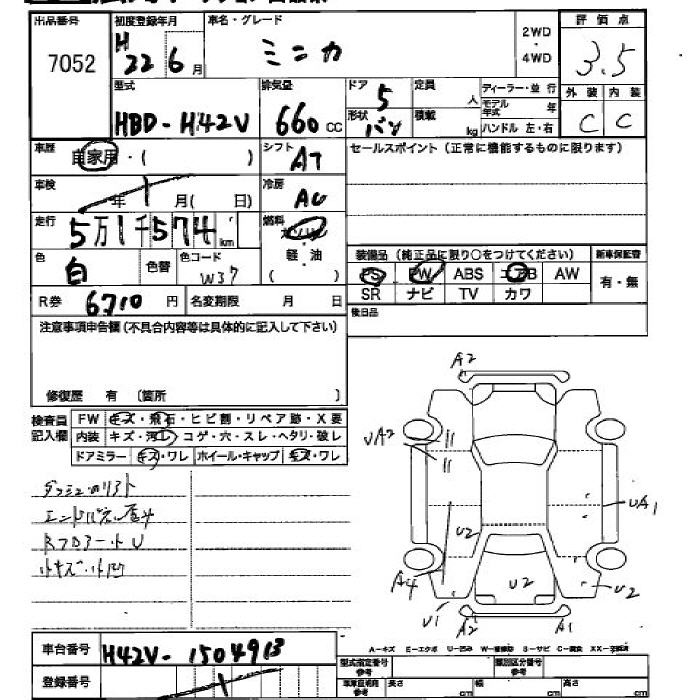 出品番号 初度登録年月 車名・グレード 2WD 評 価 点
7052 H22 6月 ミニカ ・ 4WD 3.5
型式 排気量 ドア 5 定員 人 ディーラー・並 行 外 装 内 装
HBD-H42V 660cc 形状 バン 積載 kg モデル年式 年 C C
ハンドル 左・右
車歴 自家用・( ) シフト AT セールスポイント(正常に機能するものに限ります)
車検 年 月( 日) 冷房 AC
走行 5万1千574km 燃料 ガソリン
色 白 色替 色コード W37 軽・油 ( ) 装備品(純正品に限り○をつけてください) 新車保証書
PS PW ABS エアB AW 有・無
R券 6710円 名変期限 月 日 SR ナビ TV カワ
注意事項申告欄(不具合内容等は具体的に記入して下さい) 後日品
修復歴 有 〔箇所 〕
検査員記入欄 FW キズ・飛石・ヒビ割・リペア跡・X要
内装 キズ・汚レ・コゲ・穴・スレ・ヘタリ・破レ
ドアミラー キズ・ワレ ホイール・キャップ キズ・ワレ
A2
UA2
UA1
U2
A4 U2 U2
U1 A2 A1
ダッシュのリフト
小キズ・小凹
車台番号 H42V-1504913 A-キズ E-エクボ U-凹み W-補修跡 S-サビ C-腐食 XX-交換済
登録番号 型式指定番号 参考 類別区分番号 参考
長さ cm 幅 cm 高さ cm